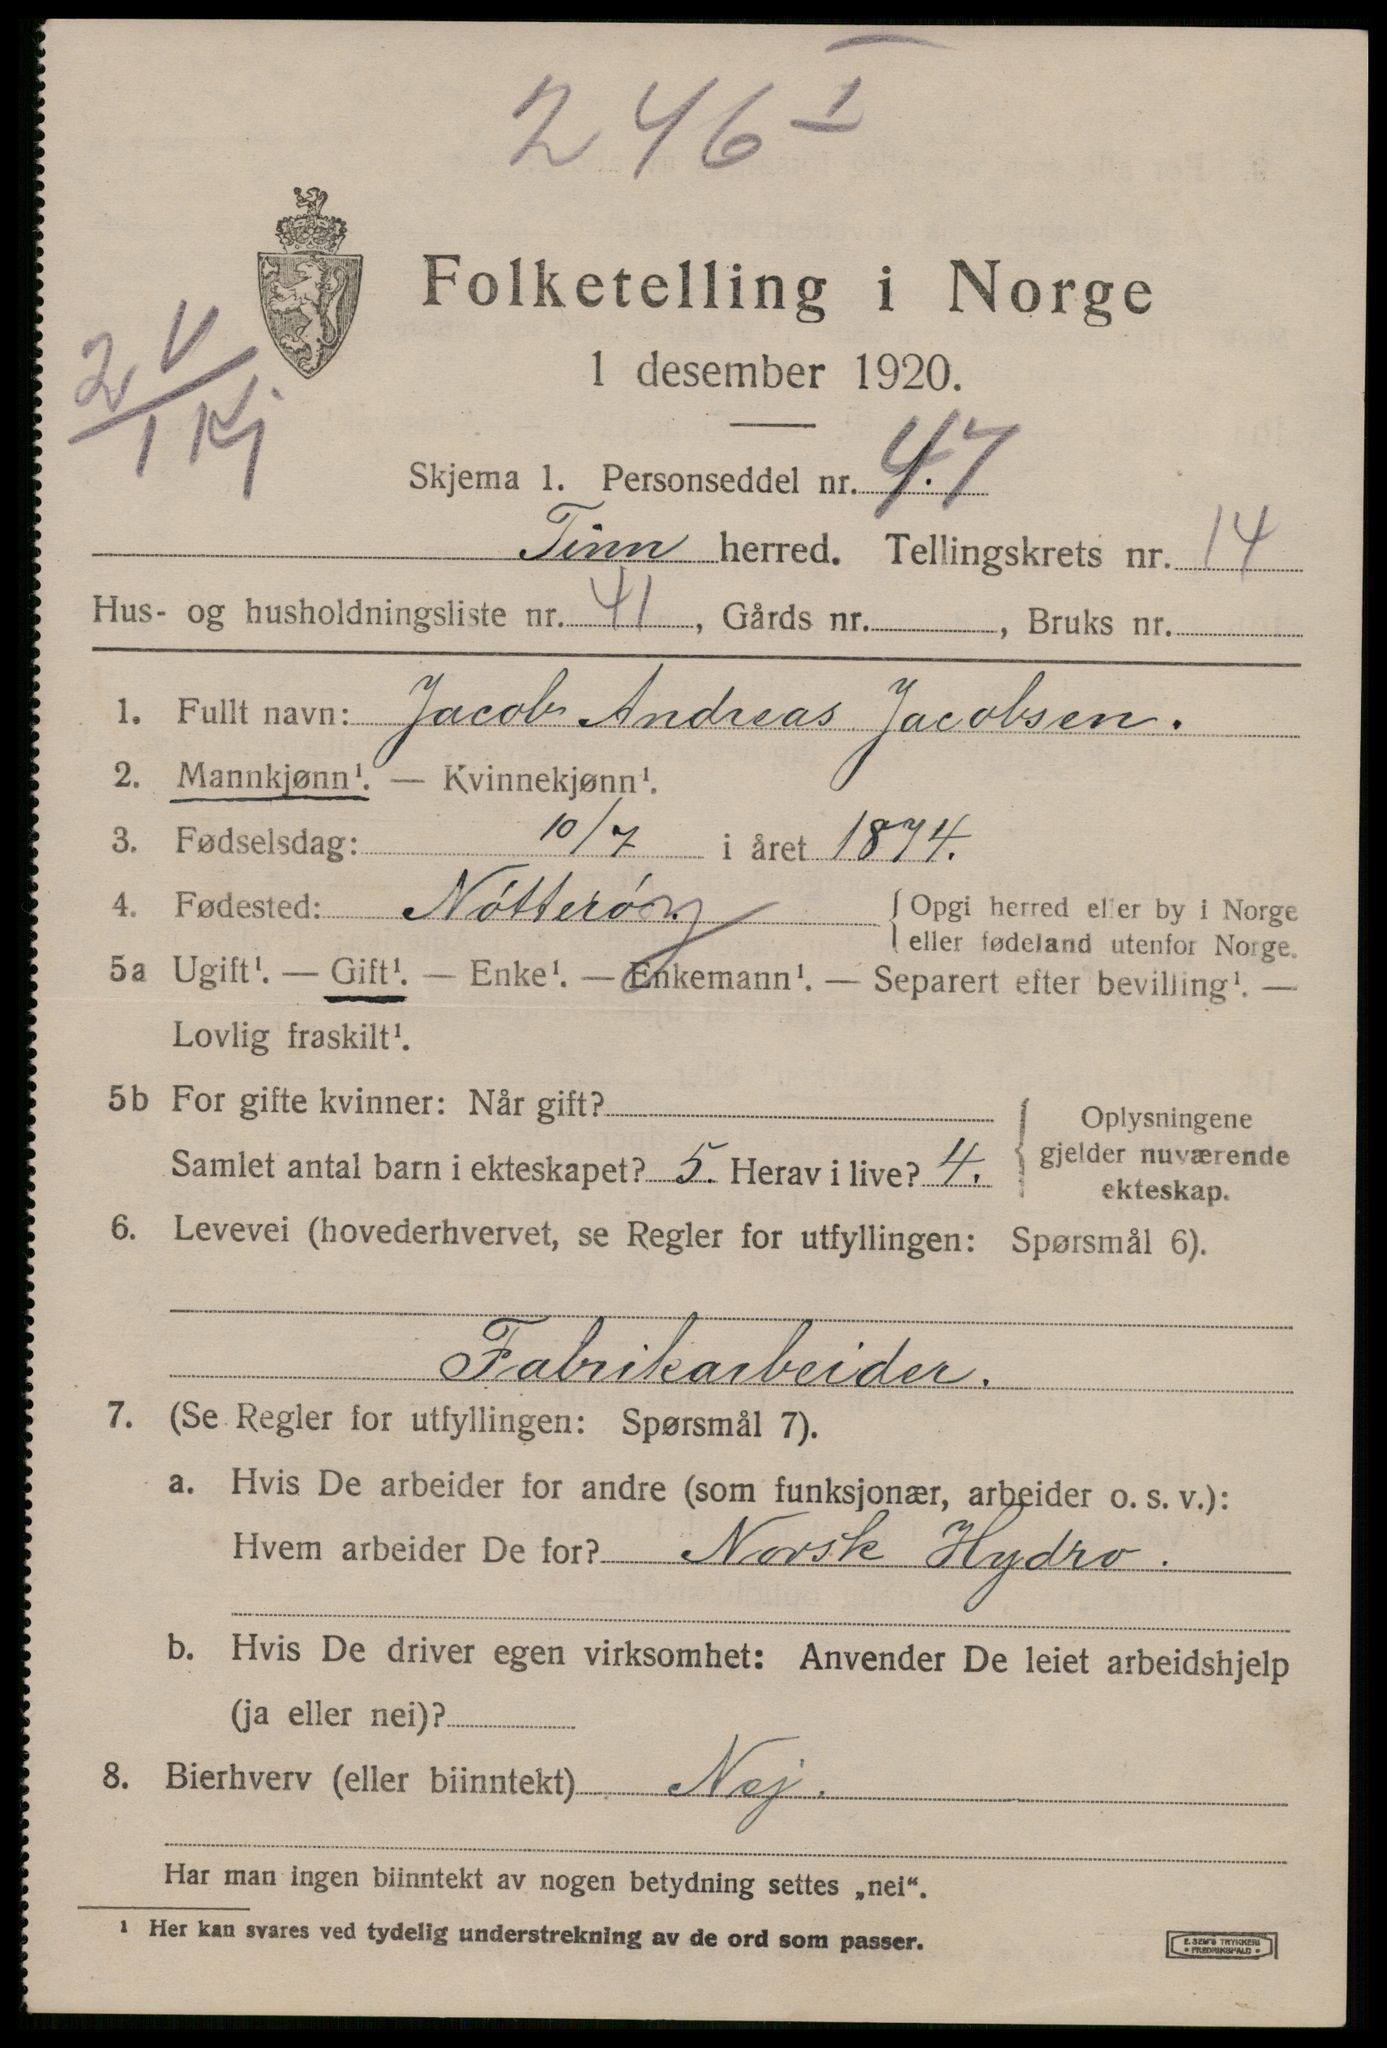 246 I
Folketelling i Norge
1 desember 1920.
2 V
1 Kj
Skjema 1. Personseddel nr. 47
Tinn herred. Tellingskrets nr. 14
Hus- og husholdningsliste nr. 41, Gårds nr. , Bruks nr.
1. Fullt navn: Jacob Andreas Jacobsen.
2. Mannkjønn¹. — Kvinnekjønn¹.
3. Fødselsdag: 10/7 i året 1874.
4. Fødested: Nótteró { Opgi herred eller by i Norge
eller fødeland utenfor Norge.
5a Ugift¹. — Gift¹. — Enke¹. — Enkemann¹. — Separert efter bevilling¹. —
Lovlig fraskilt¹.
5b For gifte kvinner: Når gift?
Samlet antal barn i ekteskapet? 5. Herav i live? 4.
{ Oplysningene
gjelder nuværende
ekteskap.
6. Levevei (hovederhvervet, se Regler for utfyllingen: Spørsmål 6).
Fabrikarbeider.
7. (Se Regler for utfyllingen: Spørsmål 7).
a. Hvis De arbeider for andre (som funksjonær, arbeider o. s. v.):
Hvem arbeider De for? Norsk Hydro.
b. Hvis De driver egen virksomhet: Anvender De leiet arbeidshjelp
(ja eller nei)?
8. Bierhverv (eller biinntekt) Nej.
Har man ingen biinntekt av nogen betydning settes „nei“.
¹ Her kan svares ved tydelig understrekning av de ord som passer.
E. SEM'S TRYKKERI
• FREDRIKSHALD •